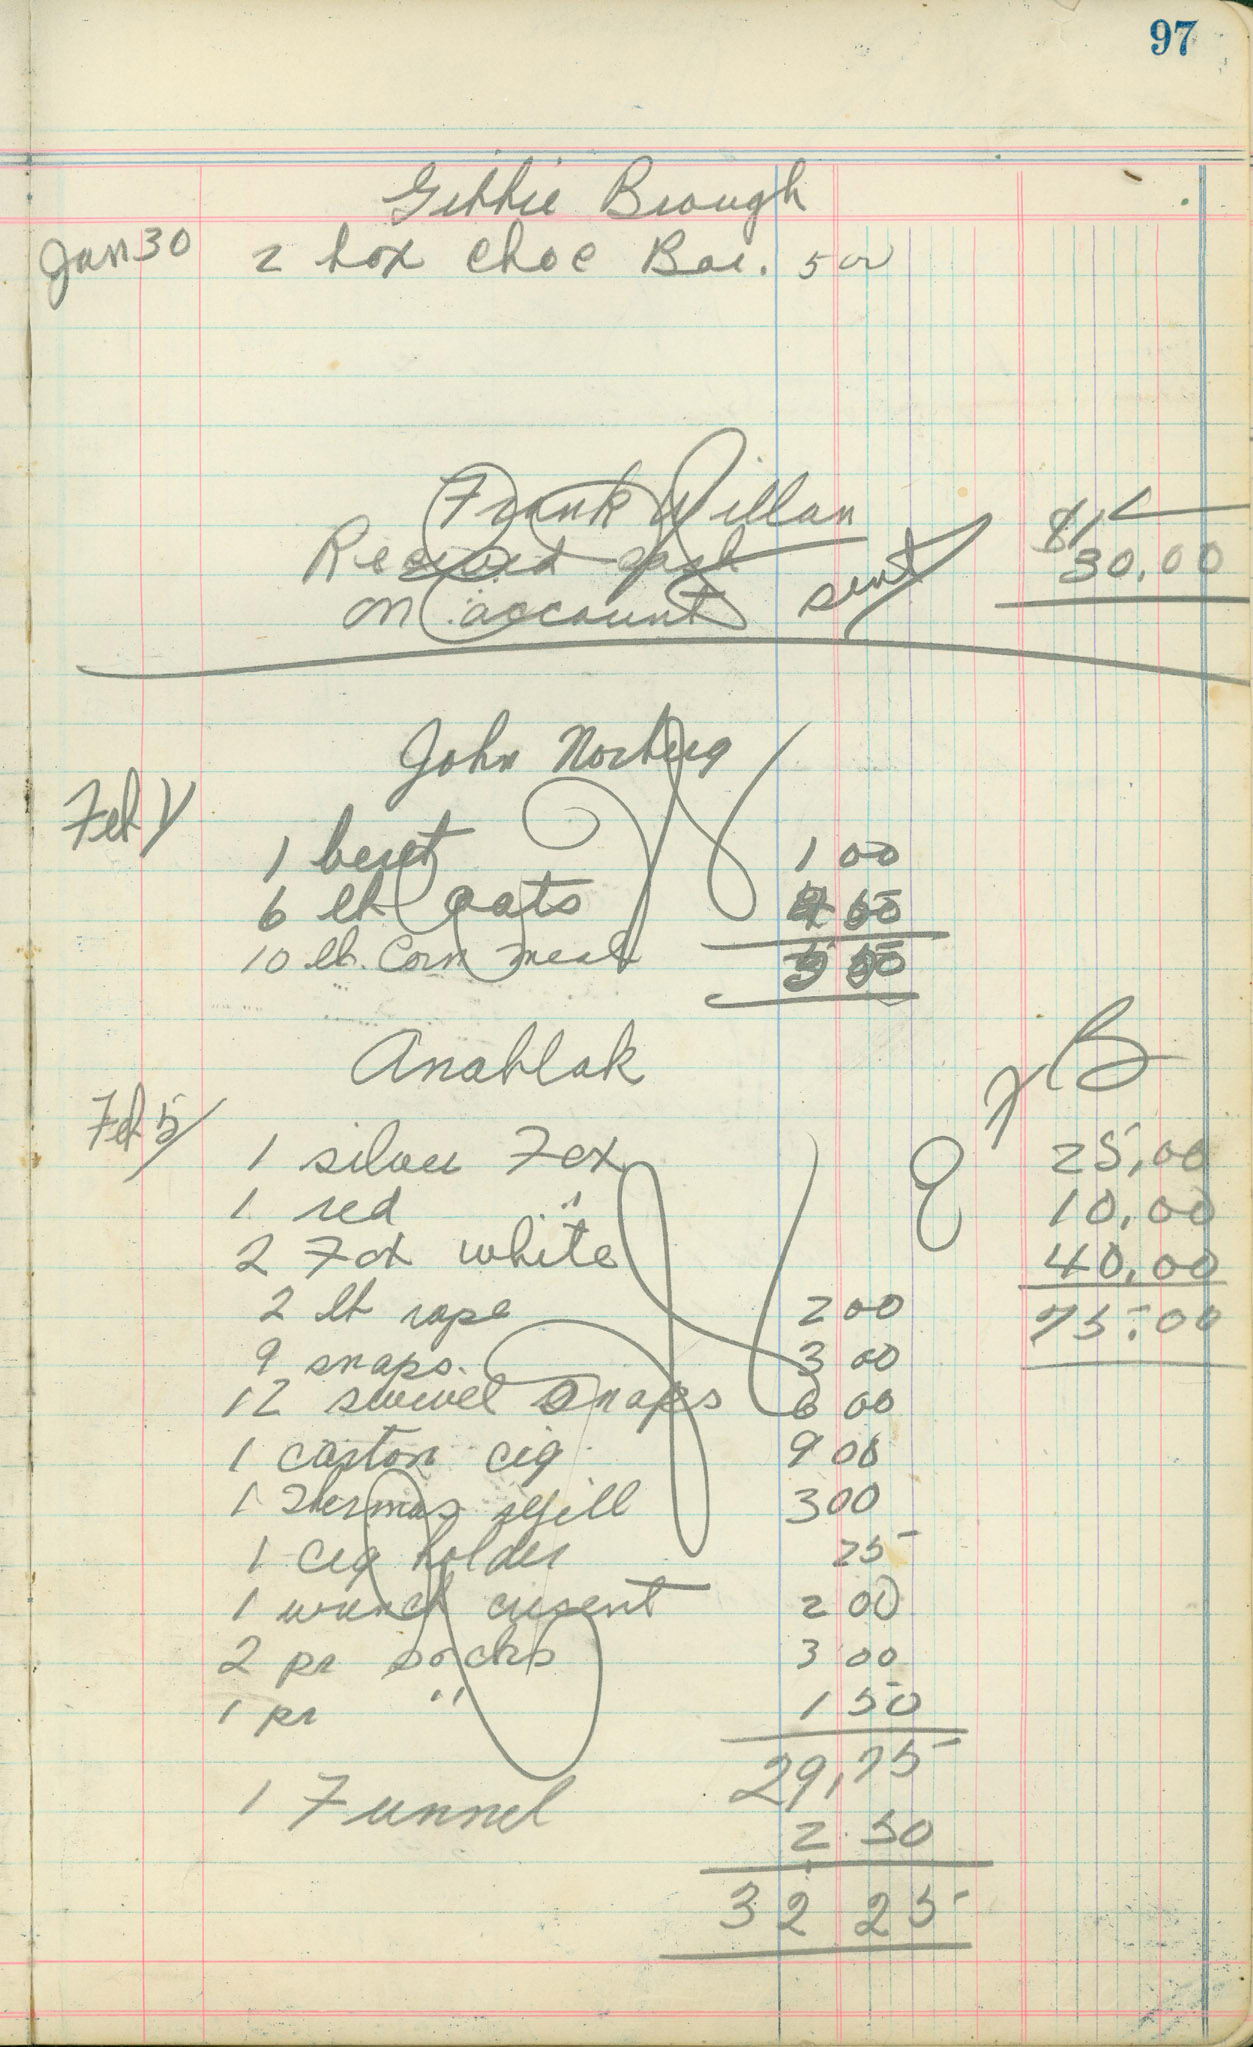 97
Gibbie Brough
Jan 30 2 box choc Bar. 5 00
Frank Dillan
Received cash $
on account sent 30,00
John Norberg
Feb
1 beret 1 00
6 lb oats
10 lb. Corn meal
Anablak
Feb 5 B
1 silver Fox 25,00
1 red " 10,00
2 Fox white 40,00
2 lb rope 2 00 75.00
9 snaps. 3 00
12 swivel snaps 6 00
1 carton cig 9 00
1 Thermos refill 3 00
1 cig holder 25
1 wrench cresent 2 00
2 pr socks 3 00
1 pr " 1 50
29,75
1 Funnel 2 50
32 25